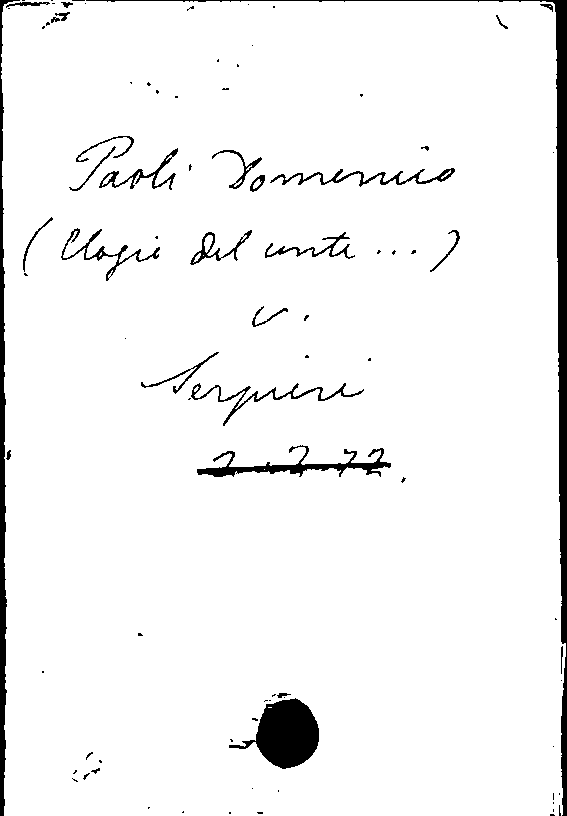 Paoli Domenico
(Elogio del conte ...)
v.
Serpieri
2.2.72